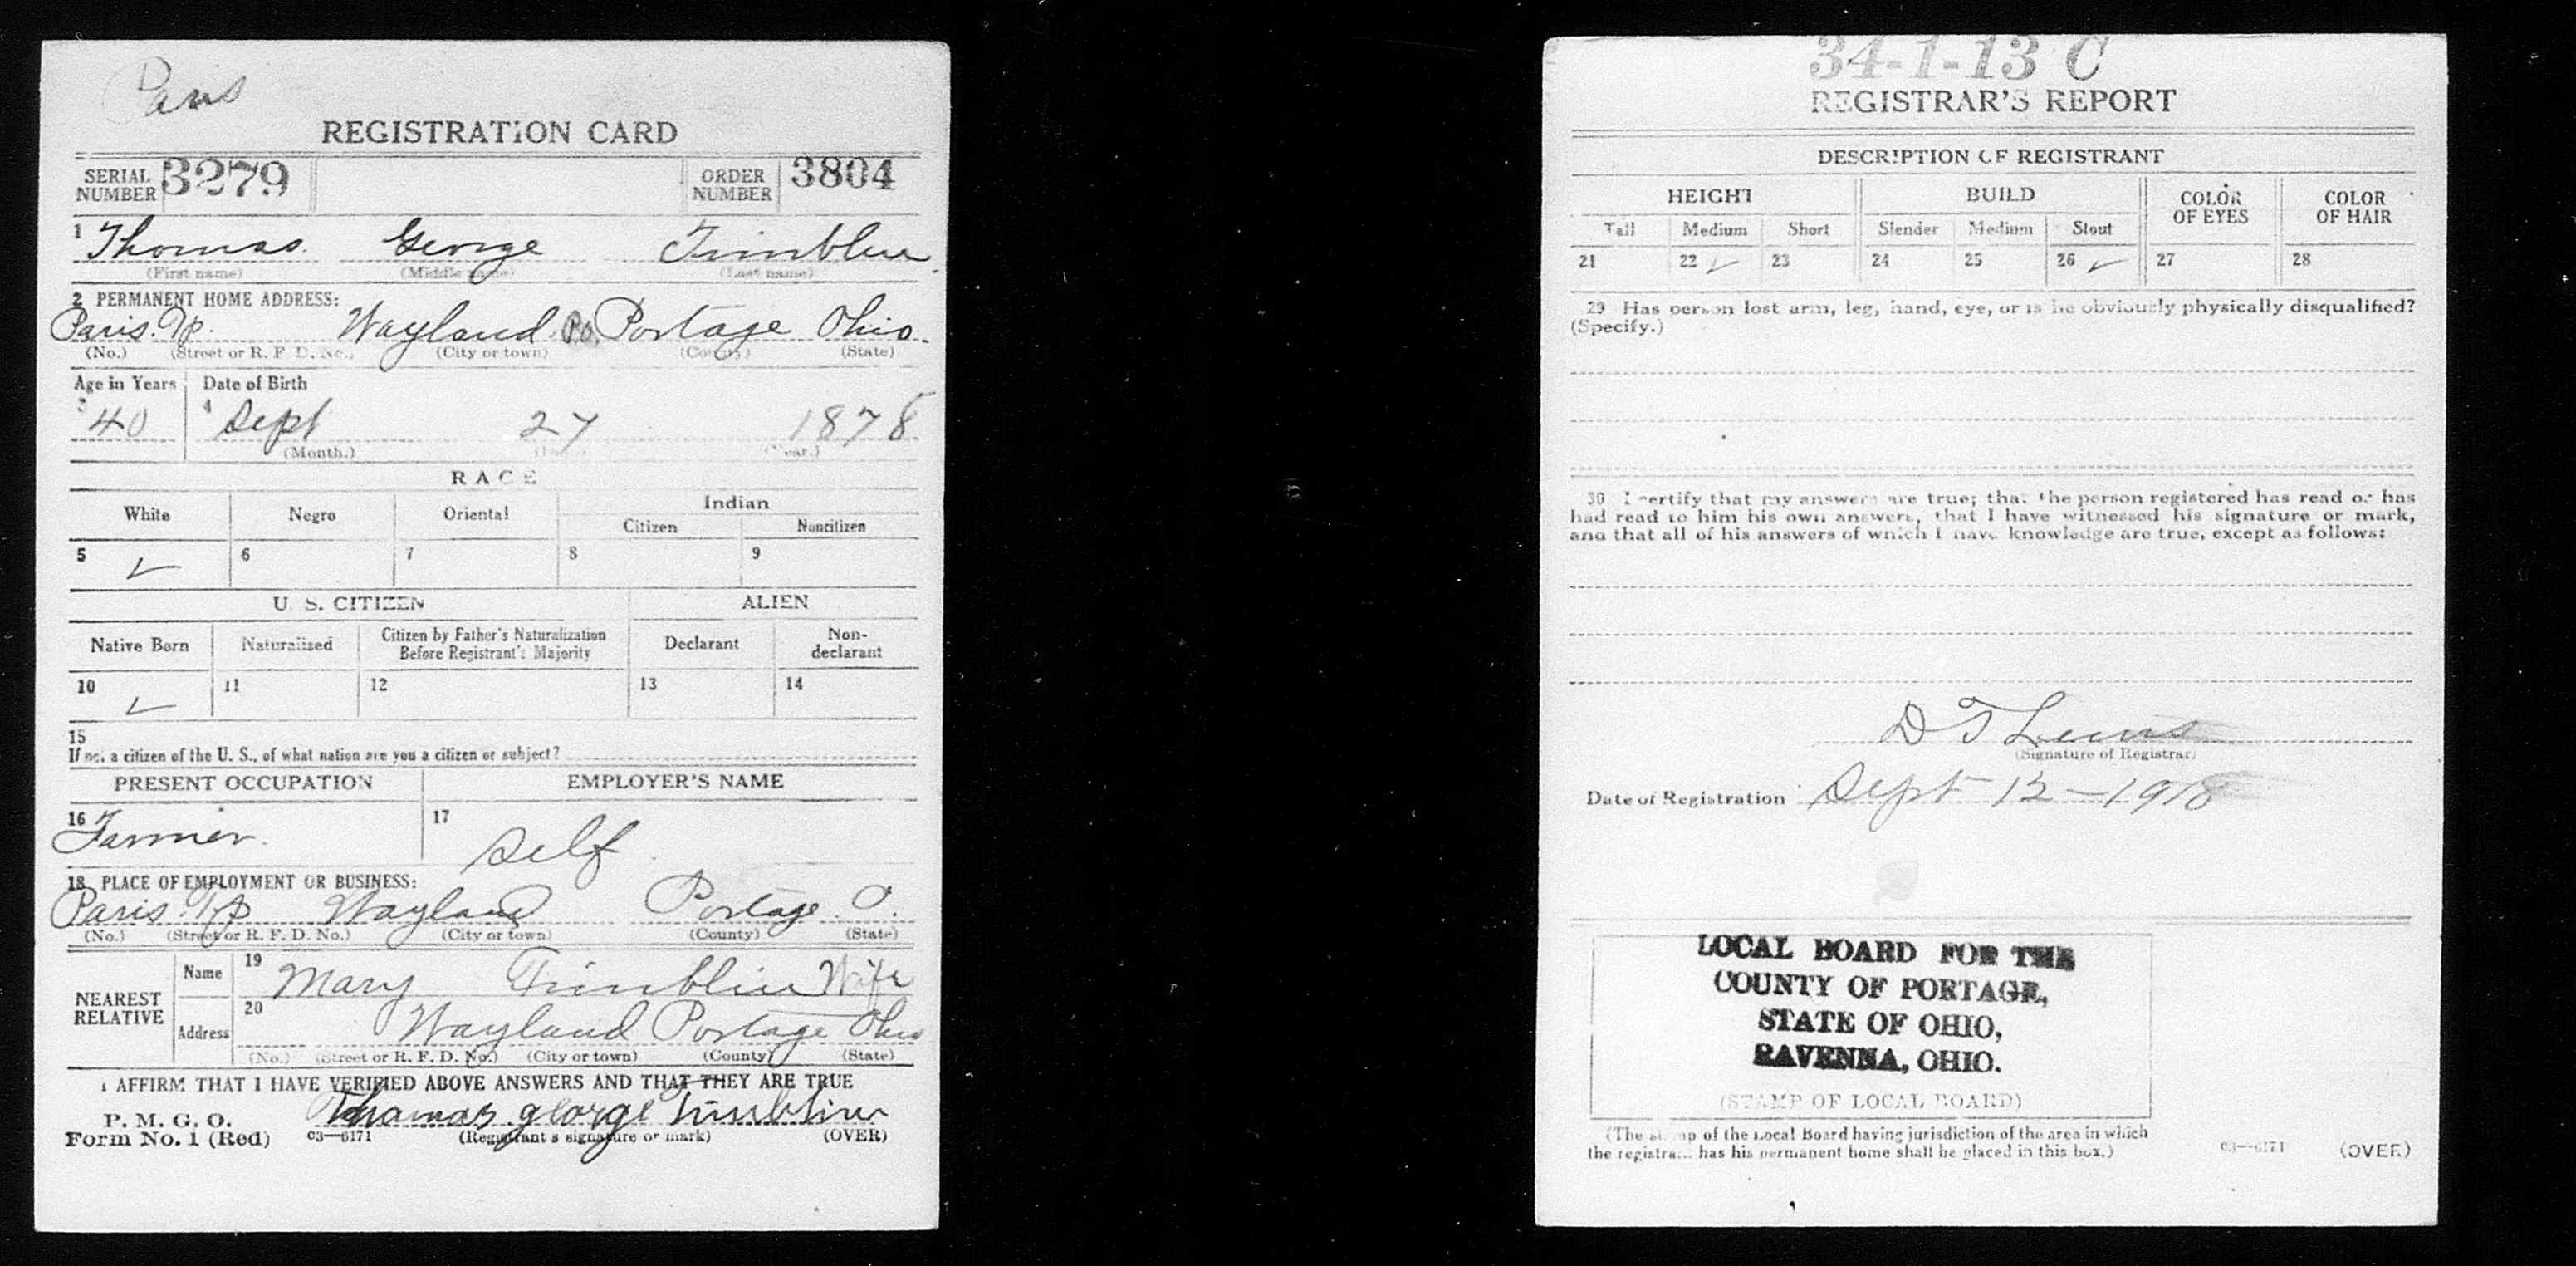 Paris
REGISTRATION CARD
SERIAL NUMBER 3279 ORDER NUMBER 3804
1 Thomas George Timblin
(First name) (Middle name) (Last name)
2 PERMANENT HOME ADDRESS:
Paris Tp. Wayland P.O. Portage Ohio.
(No.) (Street or R. F. D. No.) (City or town) (County) (State)
Age in Years Date of Birth
3 40 4 Sept 27 1878
(Month.) (Day.) (Year.)
RACE
White Negro Oriental Indian
Citizen Noncitizen
5 ✓ 6 7 8 9
U. S. CITIZEN ALIEN
Native Born Naturalized Citizen by Father's Naturalization Before Registrant's Majority Declarant Non-declarant
10 ✓ 11 12 13 14
15
If not a citizen of the U. S., of what nation are you a citizen or subject?
PRESENT OCCUPATION EMPLOYER'S NAME
16 Farmer. 17 Self
18 PLACE OF EMPLOYMENT OR BUSINESS:
Paris Tp Wayland Portage O.
(No.) (Street or R. F. D. No.) (City or town) (County) (State)
NEAREST RELATIVE
Name 19 Mary Timblin Wife
Address 20 Wayland Portage Ohio
(No.) (Street or R. F. D. No.) (City or town) (County) (State)
I AFFIRM THAT I HAVE VERIFIED ABOVE ANSWERS AND THAT THEY ARE TRUE
P. M. G. O.
Form No. 1 (Red) c3—6171 Thomas george Timblin
(Registrant's signature or mark) (OVER)
34-1-13 C
REGISTRAR'S REPORT
DESCRIPTION OF REGISTRANT
HEIGHT BUILD COLOR OF EYES COLOR OF HAIR
Tall Medium Short Slender Medium Stout
21 22 ✓ 23 24 25 26 ✓ 27 28
29 Has person lost arm, leg, hand, eye, or is he obviously physically disqualified?
(Specify.)
30 I certify that my answers are true; that the person registered has read or has
had read to him his own answers, that I have witnessed his signature or mark,
and that all of his answers of which I have knowledge are true, except as follows:
D T Lewis
(Signature of Registrar)
Date of Registration Sept 12—1918
LOCAL BOARD FOR THE
COUNTY OF PORTAGE,
STATE OF OHIO,
RAVENNA, OHIO.
(STAMP OF LOCAL BOARD)
(The stamp of the Local Board having jurisdiction of the area in which
the registrant has his permanent home shall be placed in this box.)
c3—6171 (OVER)